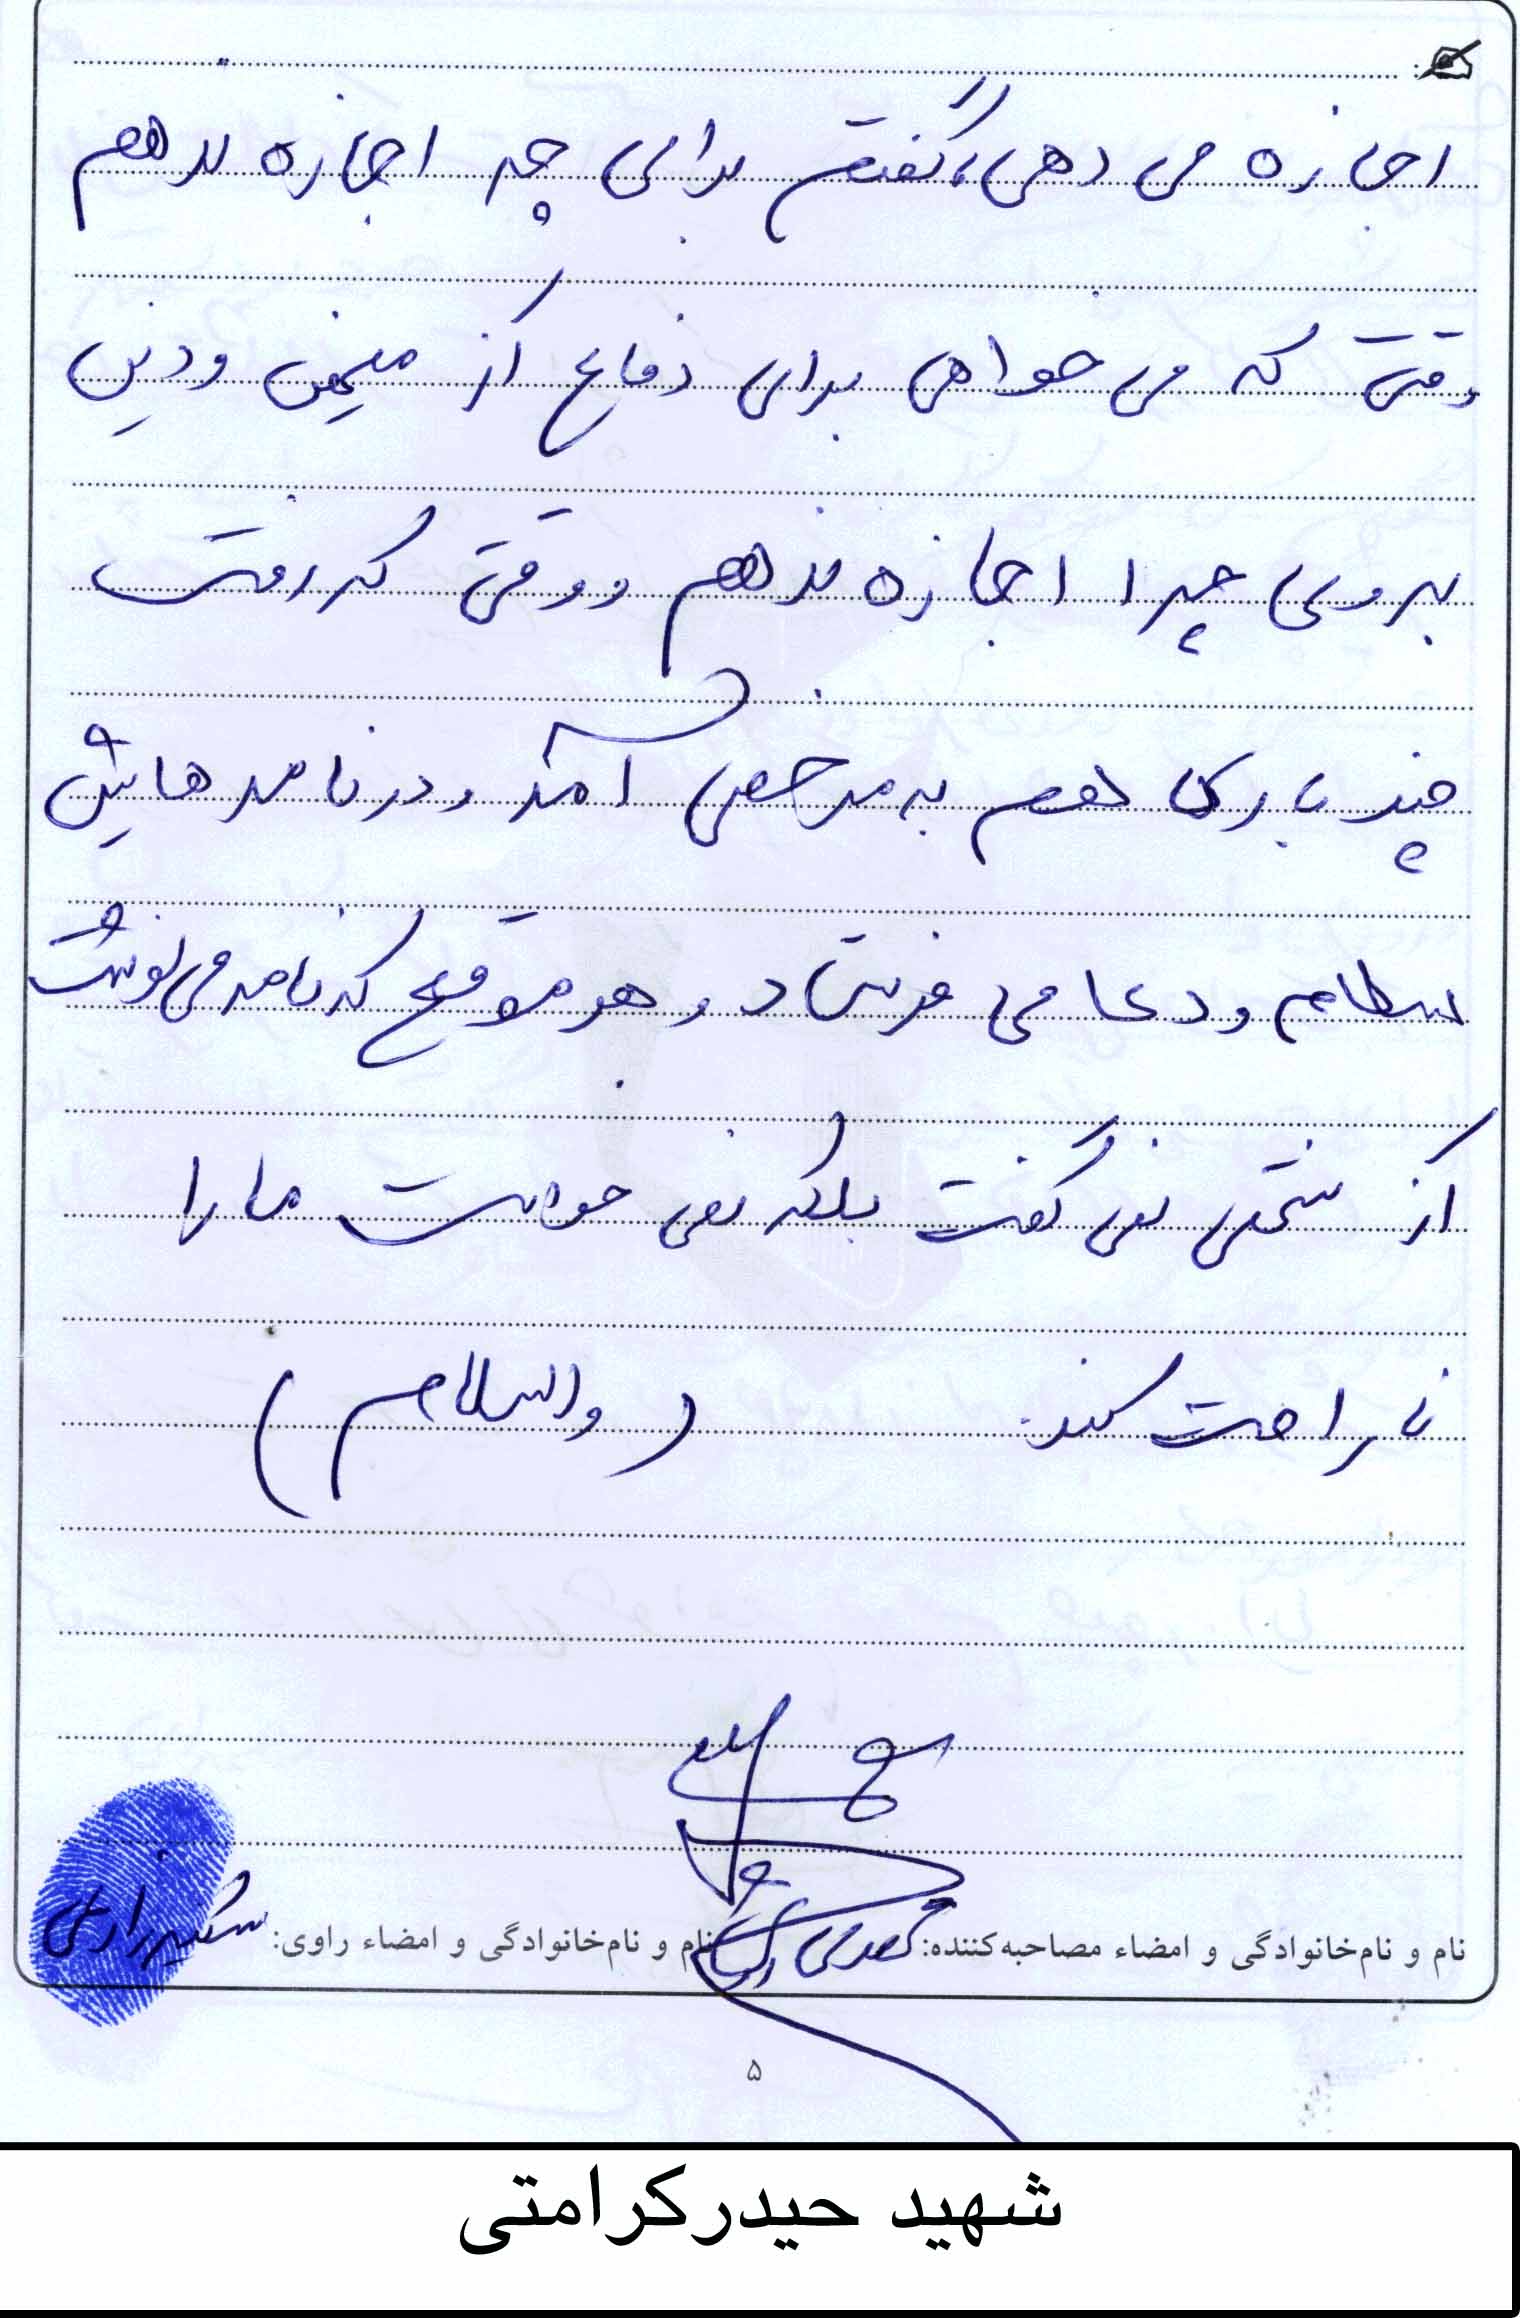 اجازه می دهی، گفتم برای چه اجازه ندهم
وقتی که می خواهی برای دفاع از میهن و دین
بروی چرا اجازه ندهم و وقتی که رفت
چند باری هم به مرخصی آمد و در نامه هایش
سلام و دعا می فرستاد و هر موقع که نامه می نوشت
از سختی نمی گفت بلکه نمی خواست ما را
ناراحت کند. (والسلام)
نام و نام‌خانوادگی و امضاء مصاحبه‌کننده: نام و نام‌خانوادگی و امضاء راوی:
۵
شهید حیدرکرامتی